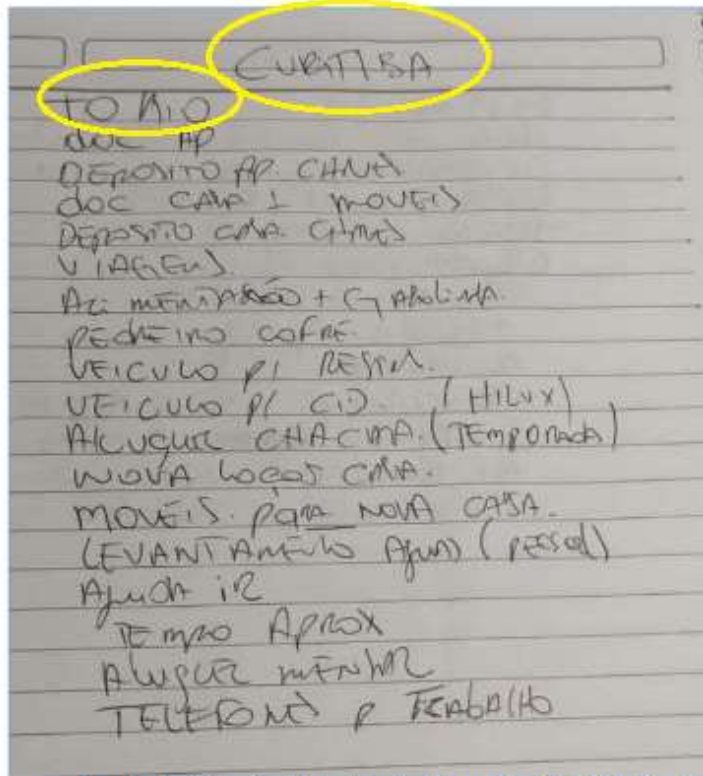 CURITIBA
TOKIO
doc AP
DEPOSITO AP. CHAVES
doc CASA 1 MOVEIS
DEPOSITO CASA CHAVES
VIAGENS
ALIMENTAÇÃO + GASOLINA.
PEDREIRO COFRE.
VEICULO P/
VEICULO P/ CID. (HILUX)
ALUGUEL CHACARA. (TEMPORADA)
NOVA CASA.
MOVEIS. PARA NOVA CASA.
LEVANTAMENTO (PESSOAL)
AJUDA
TEMPO APROX
ALUGUEL MENSAL
TELEFONES P TRABALHO